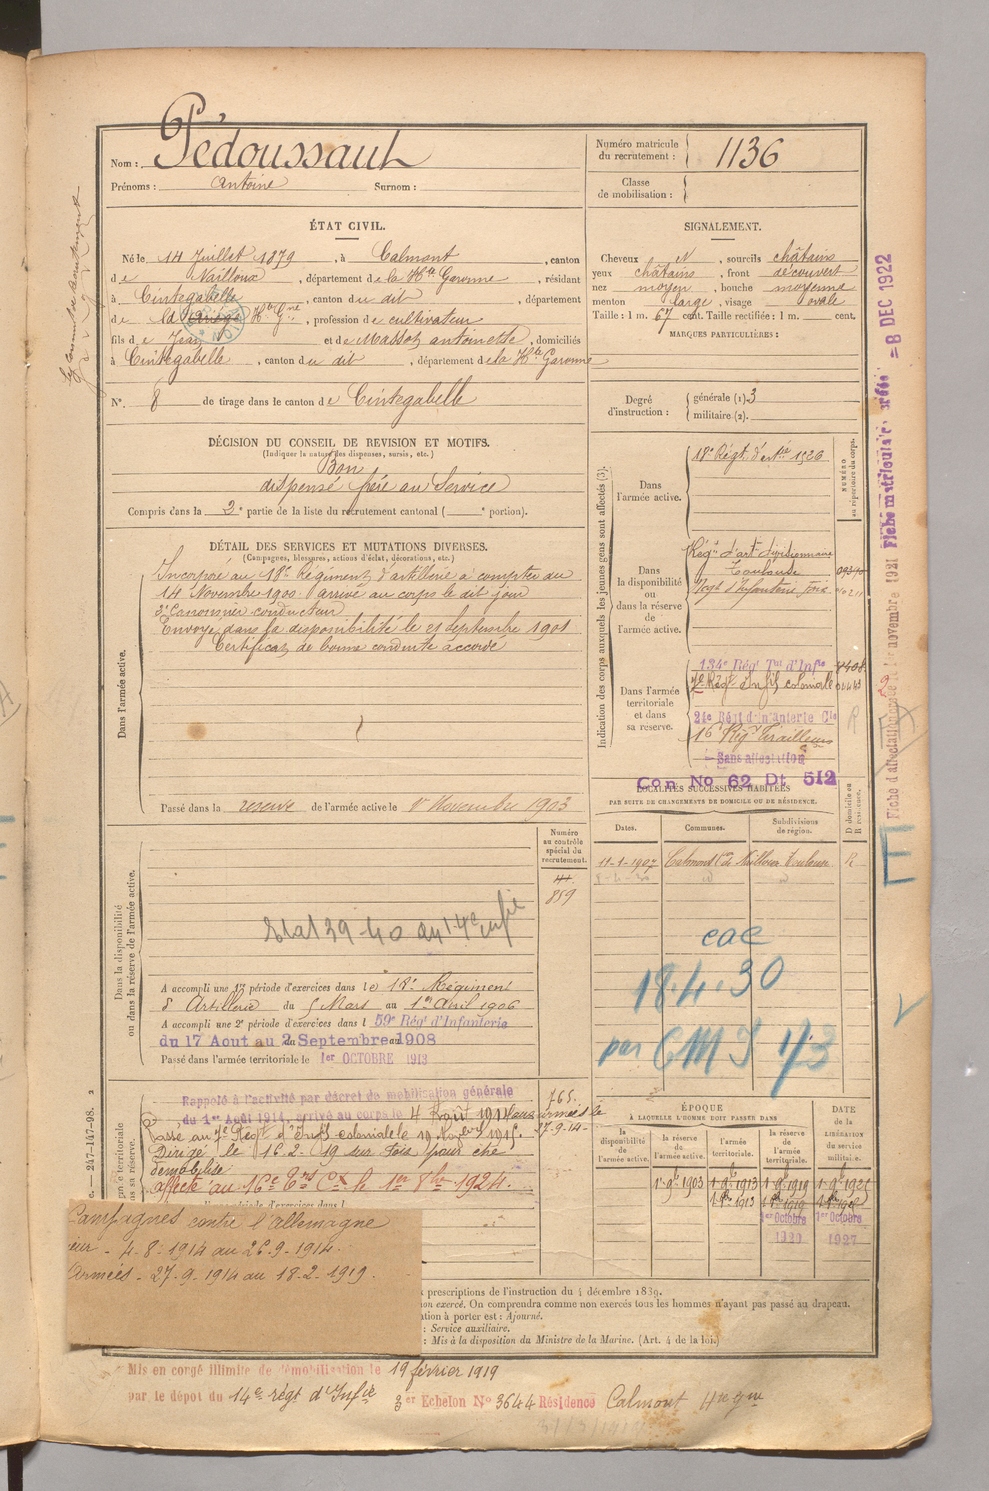 Nom : Pédoussaut
Prénoms : Antoine Surnom :
Numéro matricule du recrutement : 1136
Classe de mobilisation :
ÉTAT CIVIL.
Né le 14 Juillet 1879, à Calmont, canton
de Nailloux, département de la Hte Garonne, résidant
à Cintegabelle, canton du dit, département
de la Ariège Hte Gne, profession de cultivateur
fils de Jean et de Massot antoinette, domiciliés
à Cintegabelle, canton du dit, département de la Hte Garonne
N° 8 de tirage dans le canton de Cintegabelle
SIGNALEMENT.
Cheveux N, sourcils châtains
yeux châtains, front découvert
nez moyen, bouche moyenne
menton large, visage ovale
Taille : 1 m. 67 cent. Taille rectifiée : 1 m. cent.
MARQUES PARTICULIÈRES :
Degré d'instruction : générale (1). 3
militaire (2).
DÉCISION DU CONSEIL DE REVISION ET MOTIFS.
(Indiquer la nature des dispenses, sursis, etc.)
Bon
dispensé frère au Service
Compris dans la 2e partie de la liste du recrutement cantonal ( e portion).
DÉTAIL DES SERVICES ET MUTATIONS DIVERSES.
(Campagnes, blessures, actions d'éclat, décorations, etc.)
Dans l'armée active.
Incorporé au 18e Régiment d'artillerie à compter du
14 Novembre 1900. arrivé au corps le dit jour
2e Canonnier conducteur
Envoyé dans la disponibilité le 21 Septembre 1901
Certificat de bonne conduite accordé
Passé dans la reserve de l'armée active le 1er Novembre 1903
Indication des corps auxquels les jeunes gens sont affectés (3).
NUMÉRO au répertoire du corps.
Dans l'armée active.
18e Régt d'artie 1326
Dans la disponibilité ou dans la réserve de l'armée active.
Régt d'art divisionnaire
Toulouse
Régt d'Infanterie
Dans l'armée territoriale et dans sa réserve.
134e Régt Tal d'Infie
7e Régt Infie coloniale
24e Régt d'Infanterie Cle
16e Régt Tirailleurs
Sans affectation
Con No 62 Dt 512
LOCALITÉS SUCCESSIVES HABITÉES
PAR SUITE DE CHANGEMENTS DE DOMICILE OU DE RÉSIDENCE.
Dates. Communes. Subdivisions de région. D domicile ou R résidence.
11-1-1907 Calmont Con Nailloux Toulouse R
cae
18.4.30
par CMJ 173
Dans la disponibilité ou dans la réserve de l'armée active.
Numéro au contrôle spécial du recrutement.
859
Etat 39-40 au 14e infie
A accompli une 1e période d'exercices dans le 18e Régiment
d'Artillerie du 5 Mars au 1er Avril 1906
A accompli une 2e période d'exercices dans l 59e Régt d'Infanterie
du 17 Aout au 2 Septembre 1908
Passé dans l'armée territoriale le 1er OCTOBRE 1913
Rappelé à l'activité par décret de mobilisation générale
du 1er Août 1914, arrivé au corps le 4 Août 1914 aux armées le
27-9-14
765
Passé au 7e Régt d'Infie coloniale le 19 Novbre 1915.
Dirigé le 16.2.19 sur Foix pour être
démobilisé
affecté au 16e Ers Cx le 1er 8bre 1924.
Campagnes contre l'allemagne
ieur - 4-8-1914 au 26-9-1914.
Armées - 27.9.1914 au 18.2.1919.
ÉPOQUE
À LAQUELLE L'HOMME DOIT PASSER DANS
la disponibilité de l'armée active. la réserve de l'armée active. l'armée territoriale. la réserve de l'armée territoriale. DATE de la LIBÉRATION du service militaire.
1-9b 1903 1-9b 1913 1-9b 1919 1-9b 1925
1er Octobre 1er Octobre
1920 1927
prescriptions de l'instruction du 4 décembre 1889.
non exercé. On comprendra comme non exercés tous les hommes n'ayant pas passé au drapeau.
ation à porter est : Ajourné.
: Service auxiliaire.
: Mis à la disposition du Ministre de la Marine. (Art. 4 de la loi.)
Mis en congé illimité de démobilisation le 19 février 1919
par le dépot du 14e régt d'Infie 3er Echelon No 3644 Résidence Calmont Hte Gne
Fiche matricule créée = 8 DEC 1922
Fiche d'affectation créée le novembre 1921
— 247-147-98.